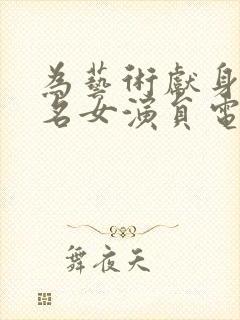 為藝術獻身
名女演員電
舞夜天